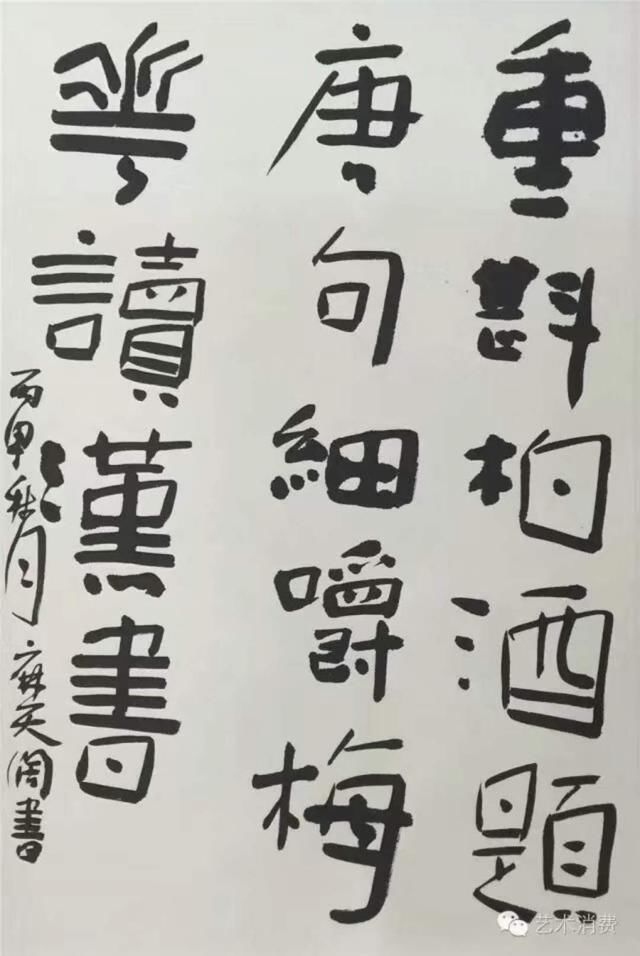 重斟柏酒題
唐句細嚼梅
花讀漢書
丙申秋月 麻天阔書
艺术消费